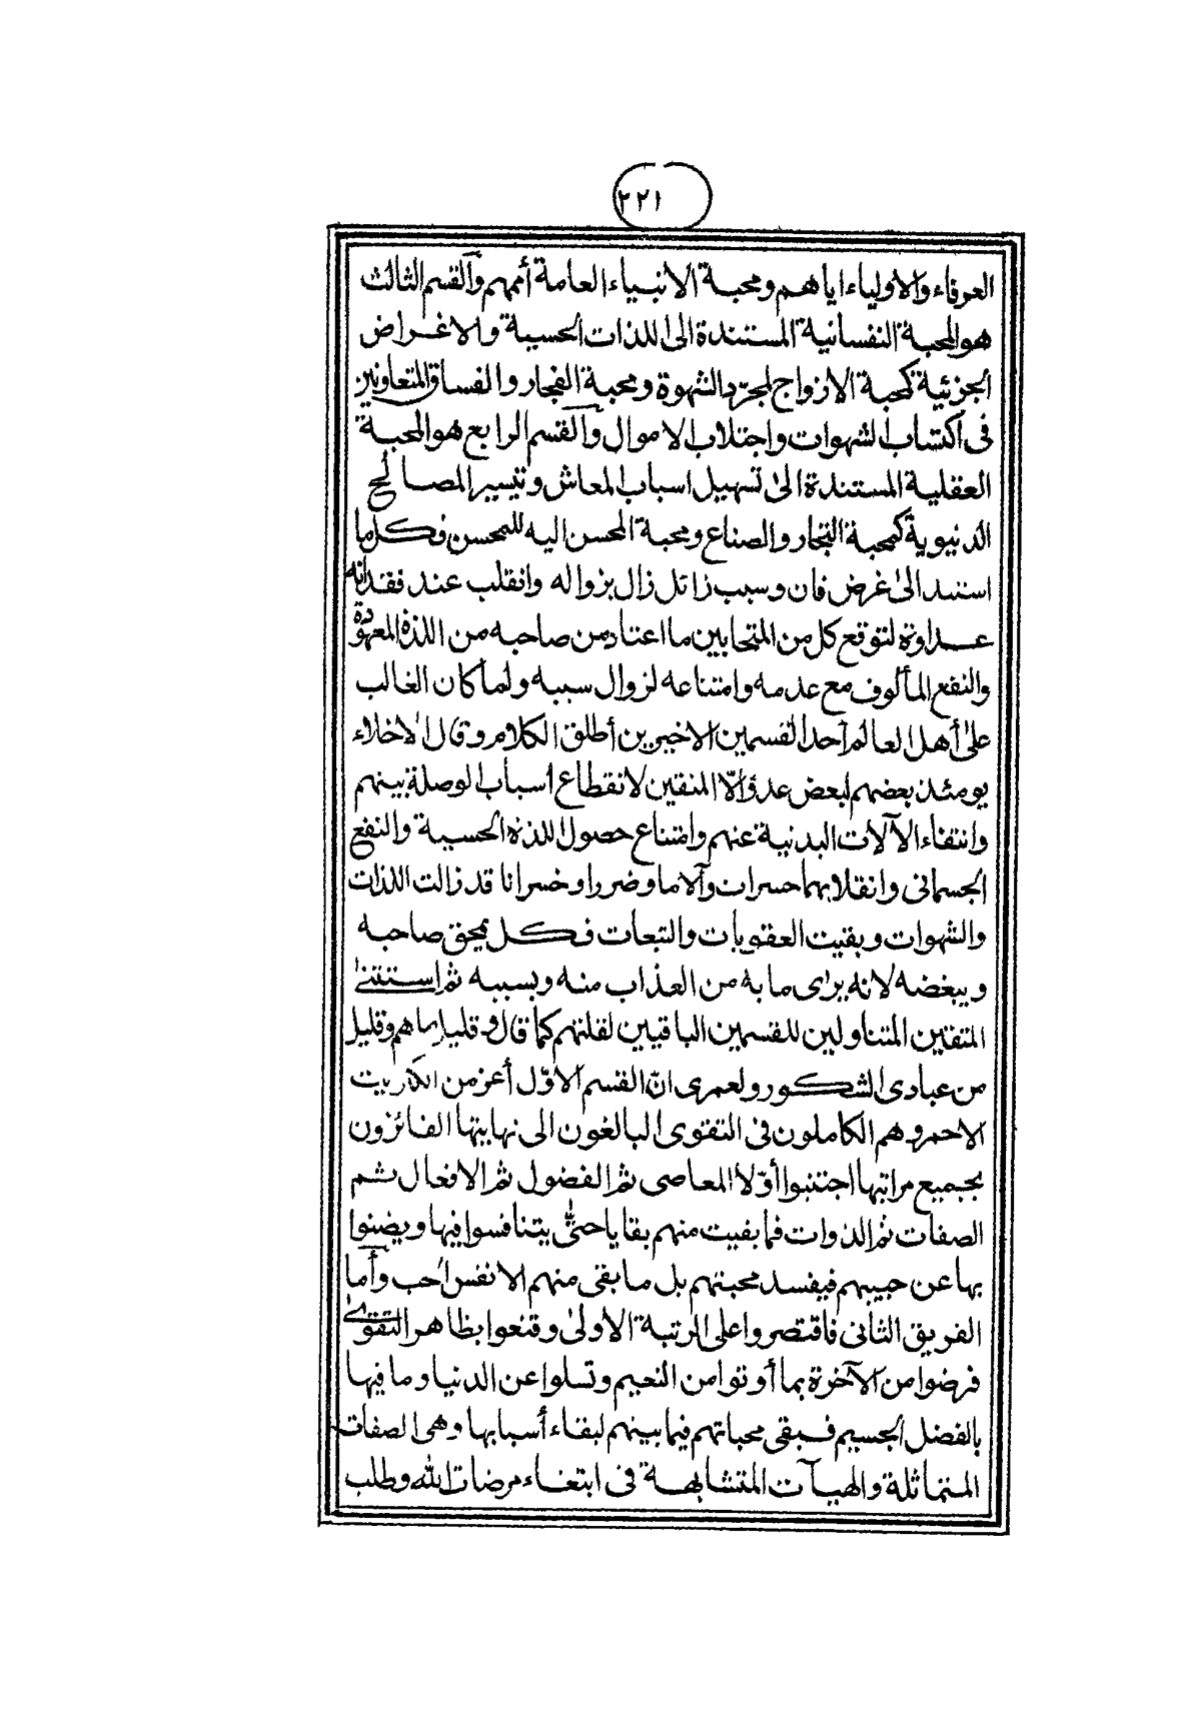 ٢٢١
العرفاء والاولياء اياهم ومحبة الانبياء العامة أممهم والقسم الثالث
هو المحبة النفسانية المستندة الى اللذات الحسية والاغراض
الجزئية كمحبة الازواج لمجرّد الشهوة ومحبة الفجار والفساق المتعاونين
فى اكتساب الشهوات واجتلاب الاموال والقسم الرابع هو المحبة
العقلية المستندة الى تسهيل اسباب المعاش وتيسير المصالح
الدنيوية كمحبة التجار والصناع ومحبة المحسن اليه للمحسن فكل ما
استند الى غرض فان وسبب زائل زال بزواله وانقلب عند فقدانه
عداوة لتوقع كل من المتحابين ما اعتاد من صاحبه من اللذة المعهودة
والنفع المألوف مع عدمه وامتناعه لزوال سببه ولما كان الغالب
على أهل العالم أحد القسمين الاخيرين أطلق الكلام وقال الاخلاء
يومئذ بعضهم لبعض عدو الّا المتقين لانقطاع اسباب الوصلة بينهم
وانتفاء الآلات البدنية عنهم وامتناع حصول اللذة الحسية والنفع
الجسمانى وانقلابهما حسرات وآلاما وضررا وخسرانا قد زالت اللذات
والشهوات وبقيت العقوبات والتبعات فكل يمحق صاحبه
ويبغضه لانه يرى ما به من العذاب منه وبسببه ثم استثنى
المتقين المتناولين للقسمين الباقيين لقلتهم كما قال وقليل ما هم وقليل
من عبادى الشكور ولعمرى انّ القسم الاوّل أعز من الكبريت
الاحمر وهم الكاملون فى التقوى البالغون الى نهايتها الفائزون
بجميع مراتبها اجتنبوا أوّلا المعاصى ثم الفضول ثم الافعال ثم
الصفات ثم الذوات فما بقيت منهم بقايا حتى يتنافسوا فيها ويضنوا
بها عن حبيبهم فيفسد محبتهم بل ما بقى منهم الا نفس الحب وأما
الفريق الثانى فاقتصروا على الرتبة الاولى وقنعوا بظاهر التقوى
فرضوا من الآخرة بما أوتوا من النعيم وتسلوا عن الدنيا وما فيها
بالفضل الجسيم فبقى محباتهم فيما بينهم لبقاء أسبابها وهى الصفات
المتماثلة والهيآت المتشابهة فى ابتغاء مرضات الله وطلب